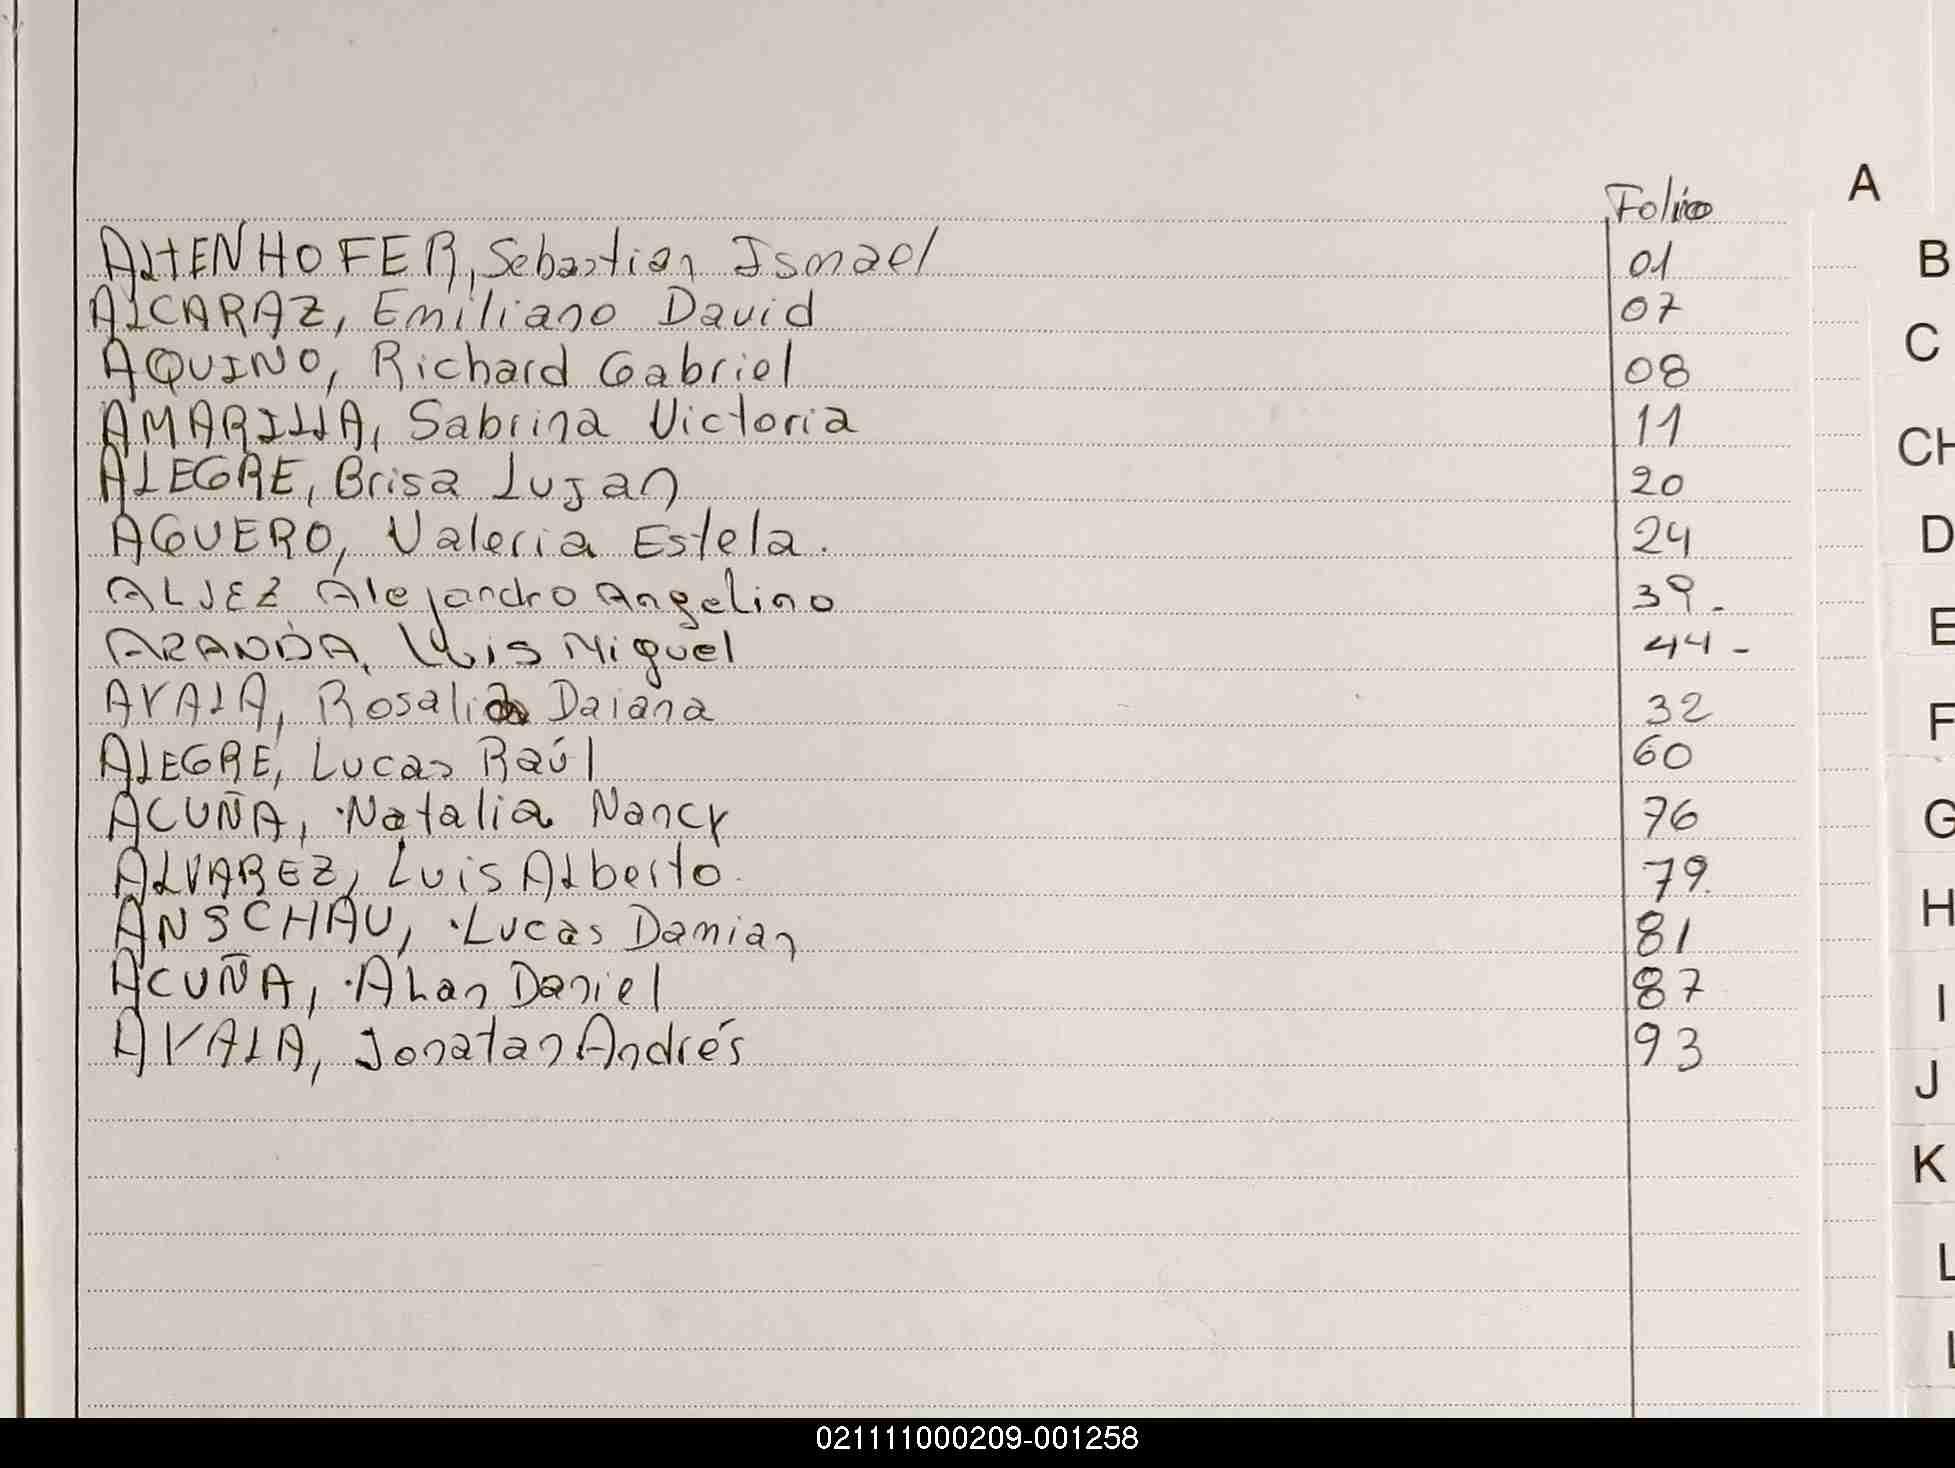 Folio
A
ALTENHOFER, Sebastian Ismael 01
ALCARAZ, Emiliano David 07
AQUINO, Richard Gabriel 08
AMARILLA, Sabrina Victoria 11
ALEGRE, Brisa Lujan 20
AGUERO, Valeria Estela. 24
ALJEZ Alejandro Angelino 39-
ARANDA, Luis Miguel 44-
AYALA, Rosalia Daiana 32
ALEGRE, Lucas Raúl 60
ACUÑA, Natalia Nancy 76
ALVAREZ, Luis Alberto 79
ANSCHAU, Lucas Damian 81
ACUÑA, Alan Daniel 87
AYALA, Jonatan Andrés 93
B
C
CH
D
E
F
G
H
I
J
K
L
021111000209-001258